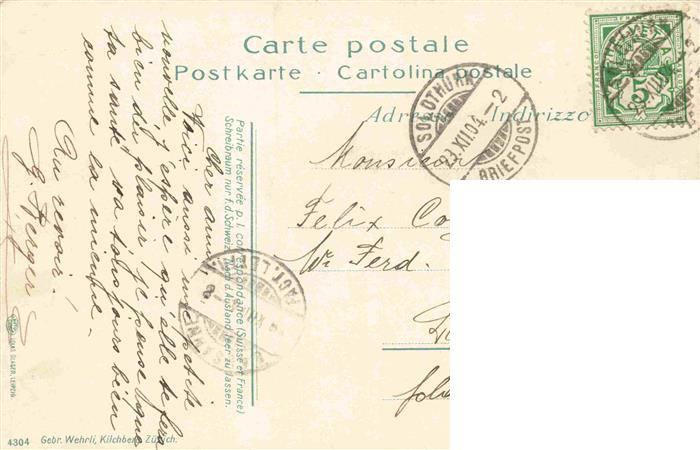 Carte postale
Postkarte · Cartolina postale
Adresse Indirizzo
SOLOTHURN
23.XII.04.-2
BRIEFPOST
5
Monsieur
Felix
Ferd.
Partie réservée p. l. correspondance (Suisse et France)
Schreibraum nur f. d. Schweiz. Nach d. Ausland leer zu lassen.
Cher ami!
Voici aussi une petite
nouvelle, j'espère qu'elle te fera
bien du plaisir. Je pense que
ta santé va toujours bien
comme la mienne.
Au revoir!
G. Berger
4304 Gebr. Wehrli, Kilchberg, Zürich.